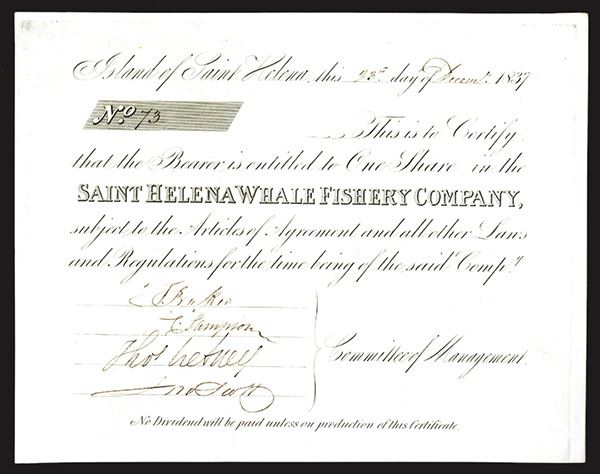 Island of Saint Helena, this 23d day of Decemr. 1837
No. 73
This is to Certify
that the Bearer is entitled to One Share in the
SAINT HELENA WHALE FISHERY COMPANY,
subject to the Articles of Agreement and all other Laws
and Regulations for the time being of the said Compy
Committee of Management
Jno Scott
No Dividend will be paid unless on production of this Certificate.